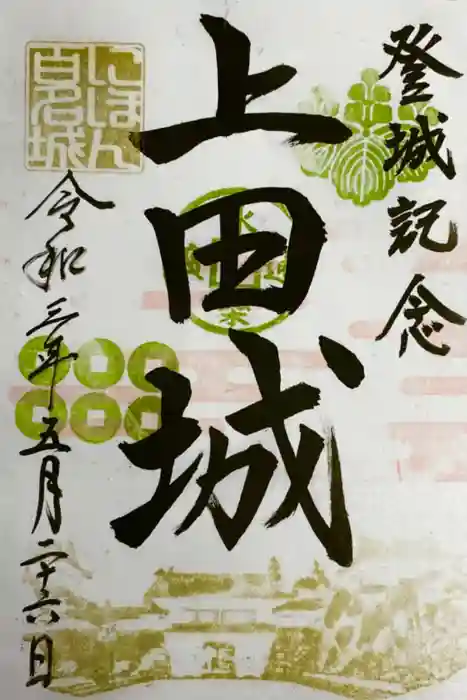 登城記念
上田城
にほん
百名城
令和三年五月二十六日